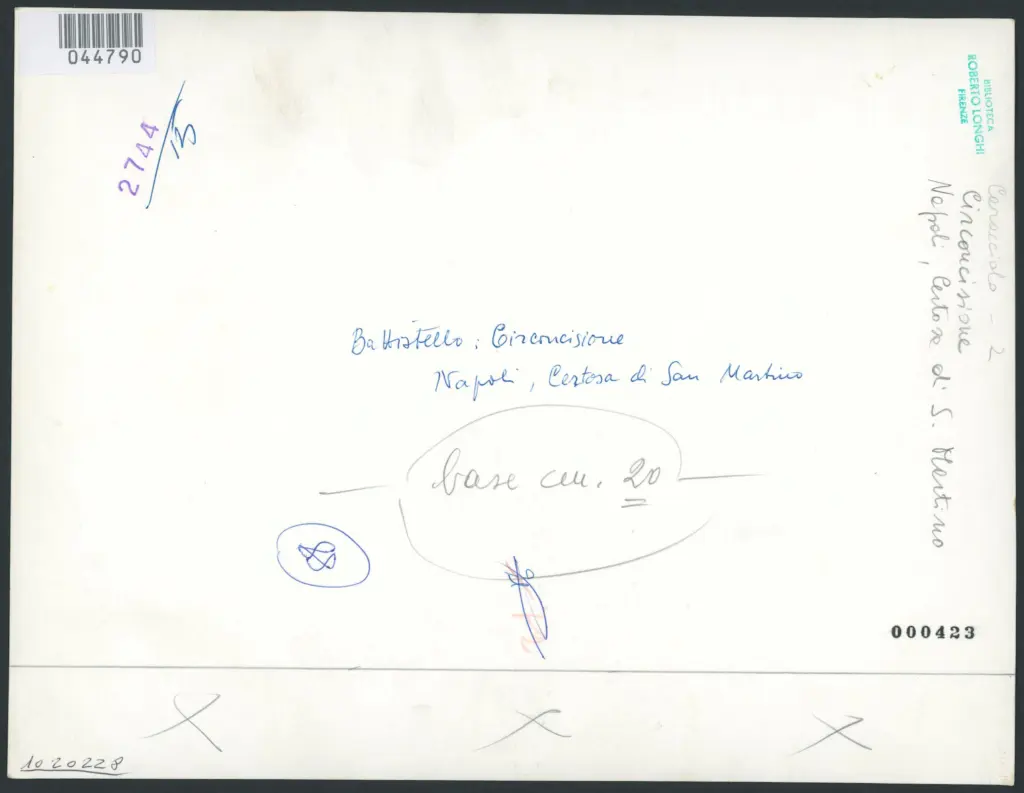 044790
2744
B
BIBLIOTECA
ROBERTO LONGHI
FIRENZE
Caracciolo - 2
Circoncisione
Napoli, Certosa di S. Martino
Battistello: Circoncisione
Napoli, Certosa di San Martino
base cm. 20
000423
1020228